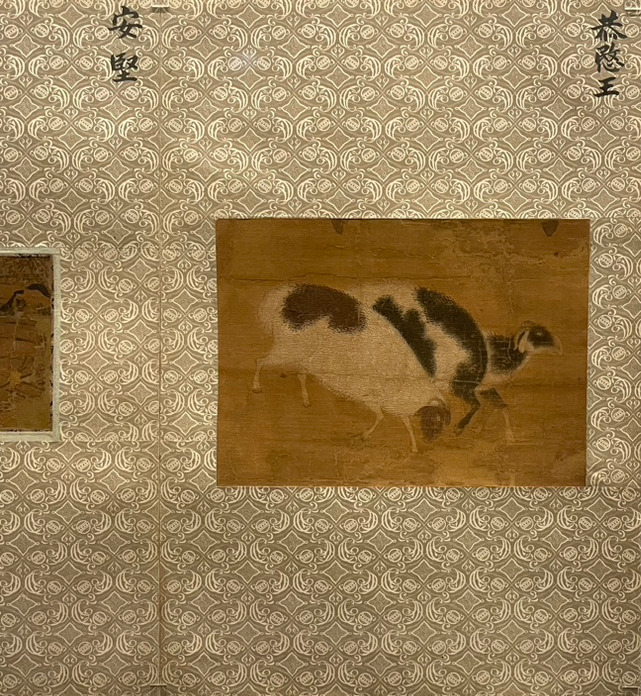 恭愍王
安堅